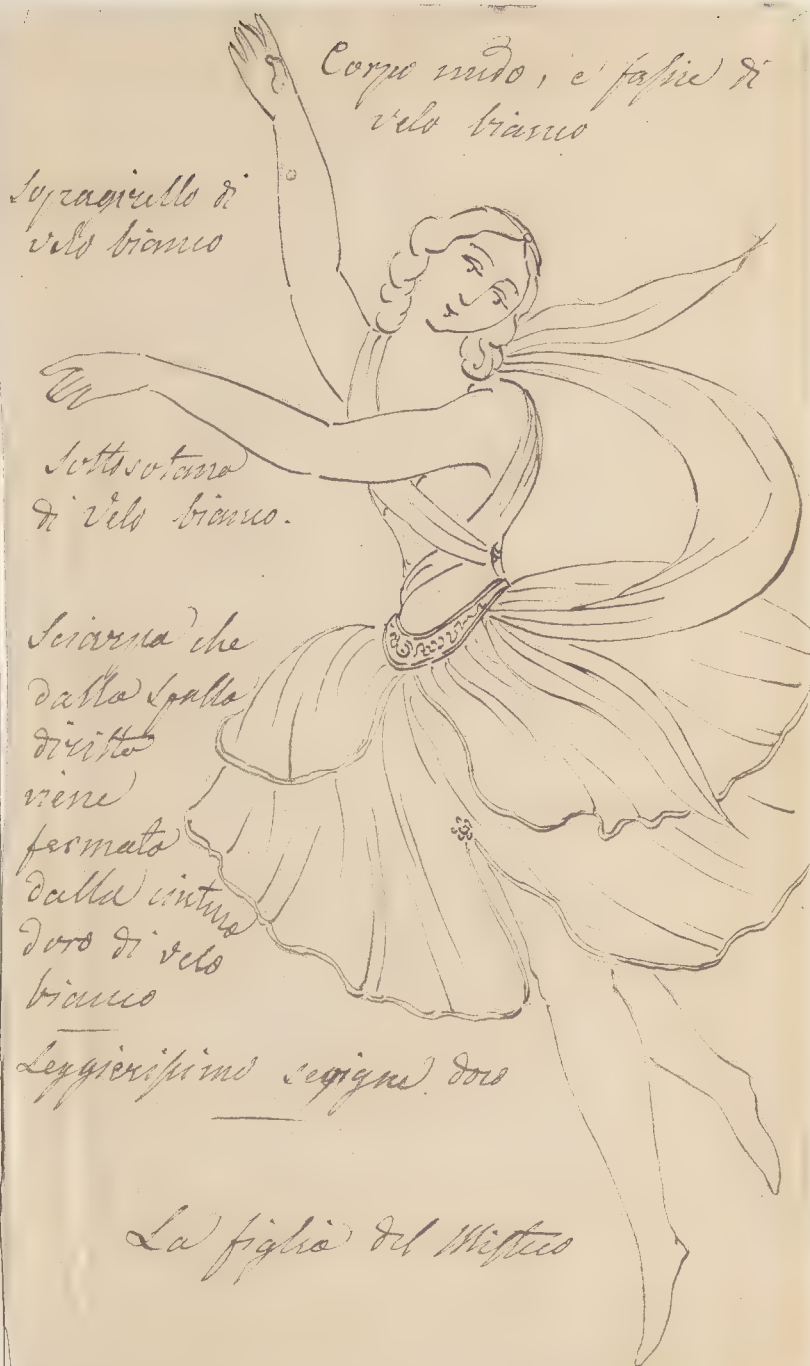 Corpo nudo, e fasſie di
velo bianco
Sopragirello di
velo bianco
Sottosotana
di Velo bianco.
Sciarpa che
dalla Spalla
diritta
viene
fermata
dalla cintura
d'oro di velo
bianco
Leggierissimo d'oro
La figlia del